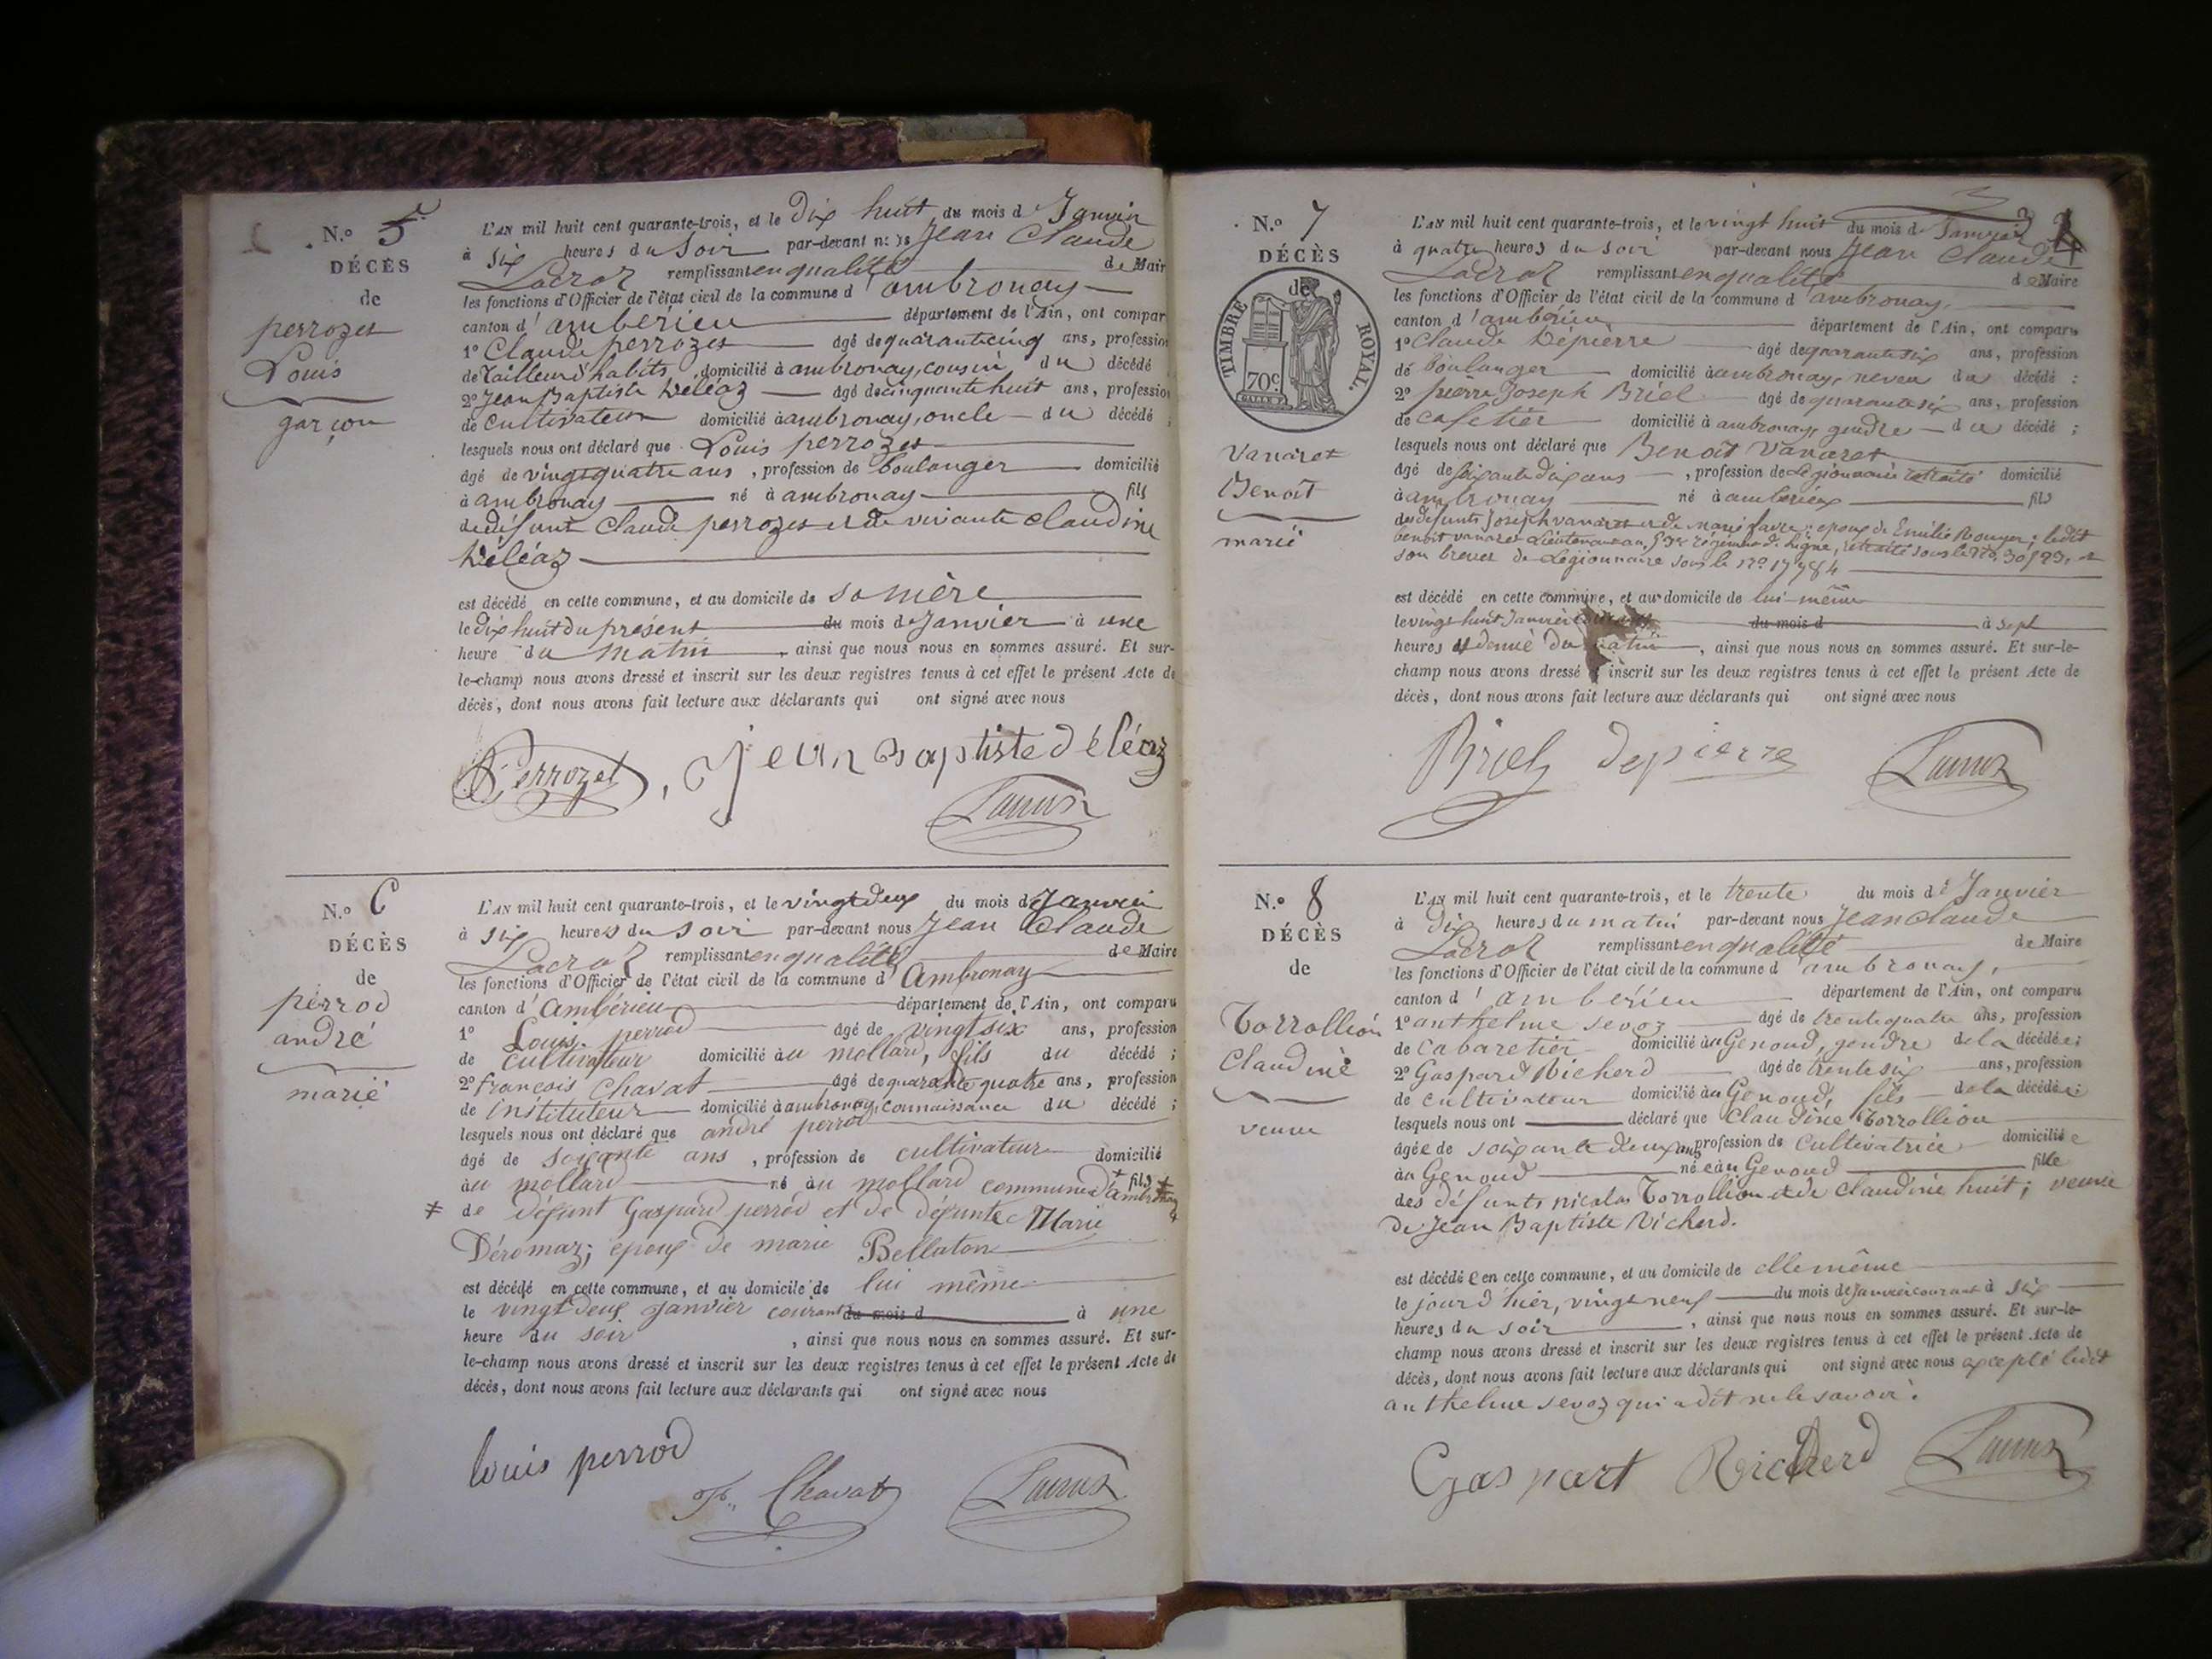 N.º 5
DÉCÈS
de
perrozet
Louis
garçon
L'AN mil huit cent quarante-trois, et le dix huit du mois d Janvier
à six heures du soir par-devant nous Jean Claude
Lacroz remplissant en qualité de Mair
les fonctions d'Officier de l'état civil de la commune d'ambronay
canton d'ambérieu département de l'Ain, ont compar
1º Claude perrozet âgé de quarante cinq ans, profession
de Tailleur d'habits, domicilié à ambronay, cousin du décédé
2º Jean Baptiste Déléaz âgé de cinquante huit ans, profession
de Cultivateur domicilié à ambronay, oncle du décédé ;
lesquels nous ont déclaré que Louis perrozet
âgé de vingt quatre ans, profession de boulanger domicilié
à ambronay né à ambronay fils
de défunt Claude perrozet et de vivante Claudine
Déléaz
est décédé en cette commune, et au domicile de sa mère
le dix huit du présent du mois de Janvier à une
heure du matin, ainsi que nous nous en sommes assuré. Et sur-
le-champ nous avons dressé et inscrit sur les deux registres tenus à cet effet le présent Acte de
décès, dont nous avons fait lecture aux déclarants qui ont signé avec nous
Perrozet, Jean Baptiste déléaz
N.º 6
DÉCÈS
de
perrod
andré
marié
L'AN mil huit cent quarante-trois, et le vingt deux du mois d Janvier
à six heures du soir par-devant nous Jean Claude
Lacroz remplissant en qualité de Maire
les fonctions d'Officier de l'état civil de la commune d'Ambronay
canton d'Ambérieu département de l'Ain, ont comparu
1º Louis perrod âgé de vingt six ans, profession
de cultivateur domicilié au mollard, fils du décédé ;
2º françois Chavat âgé de quarante quatre ans, profession
de instituteur domicilié à ambronay, connaissance du décédé ;
lesquels nous ont déclaré que andré perrod
âgé de soixante ans, profession de cultivateur domicilié
au mollard né au mollard commune d'ambronay fils
de défunt Gaspard perrod et de défunte Marie
Déromaz ; epoux de marie Bellaton
est décédé en cette commune, et au domicile de lui même
le vingt deux janvier courant du mois d à une
heure du soir, ainsi que nous nous en sommes assuré. Et sur-
le-champ nous avons dressé et inscrit sur les deux registres tenus à cet effet le présent Acte de
décès, dont nous avons fait lecture aux déclarants qui ont signé avec nous
louis perrod
Chavat
N.º 7
DÉCÈS
de
TIMBRE ROYAL.
70c
Vanaret
Benoit
marié
L'AN mil huit cent quarante-trois, et le vingt huit du mois d Janvier
à quatre heures du soir par-devant nous Jean Claude
Lacroz remplissant en qualité de Maire
les fonctions d'Officier de l'état civil de la commune d'ambronay,
canton d'ambérieu département de l'Ain, ont comparu
1º Claude Depierre âgé de quarante six ans, profession
de boulanger domicilié à ambronay, neveu du décédé ;
2º pierre Joseph Briel âgé de quarante six ans, profession
de cafetier domicilié à ambronay, gendre du décédé ;
lesquels nous ont déclaré que Benoît Vanaret
âgé de soixante dix ans, profession de Légionnaire retraité domicilié
à ambronay né à ambérieu fils
des défunts Joseph vanaret et de marie favre ; epoux de Emilie Rouyer ; ledit
benoit vanaret Lieutenant au régiment de ligne, retraité sous le nº
son brevet de Légionnaire sous le nº 17784
est décédé en cette commune, et au domicile de lui-même
le vingt huit Janvier courant du mois d à sept
heures et demie du matin, ainsi que nous nous en sommes assuré. Et sur-le-
champ nous avons dressé inscrit sur les deux registres tenus à cet effet le présent Acte de
décès, dont nous avons fait lecture aux déclarants qui ont signé avec nous
Briel depierre
N.º 8
DÉCÈS
de
Torrollion
Claudine
veuve
L'AN mil huit cent quarante-trois, et le trente du mois de Janvier
à dix heures du matin par-devant nous Jean Claude
Lacroz remplissant en qualité de Maire
les fonctions d'Officier de l'état civil de la commune d'ambronay,
canton d'ambérieu département de l'Ain, ont comparu
1º anthelme sevoz âgé de trente quatre ans, profession
de cabaretier domicilié au Genoud, gendre de la décédée ;
2º Gaspard Richerd âgé de trente six ans, profession
de cultivateur domicilié au Genoud, fils de la décédée ;
lesquels nous ont déclaré que Claudine Torrollion
âgée de soixante deux ans profession de Cultivatrice domiciliée
au Genoud née au Genoud fille
des défunts nicolas Torrollion et de claudine huit ; veuve
de Jean Baptiste Richerd.
est décédée en cette commune, et au domicile de elle même
le jour d'hier, vingt neuf du mois de Janvier courant à six
heures du soir, ainsi que nous nous en sommes assuré. Et sur-le-
champ nous avons dressé et inscrit sur les deux registres tenus à cet effet le présent Acte de
décès, dont nous avons fait lecture aux déclarants qui ont signé avec nous excepté ledit
anthelme sevoz qui a dit ne le savoir.
Gaspart Richerd